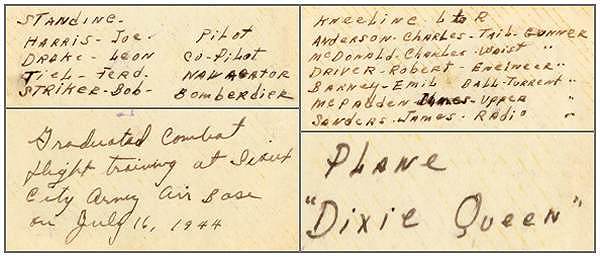 STANDING-
HARRIS- JOE- Pilot
DRAKE- LEON Co-Pilot
TIEL- FERD- NAVAGATOR
STRIKER-BOB- BOMBERDIER
Graduated Combat
flight training at Sioux
City Army Air Base
on July 16, 1944
KNEELING L to R
ANDERSON-CHARLES-TAIL-GUNNER
MCDONALD-CHARLES-WAIST "
DRIVER-ROBERT-ENGINEER "
BARNEY-EMIL BALL-TURRENT "
MCFADDEN JAMES-UPPER "
SANDERS-JAMES-RADIO "
PLANE
"DIXIE QUEEN"